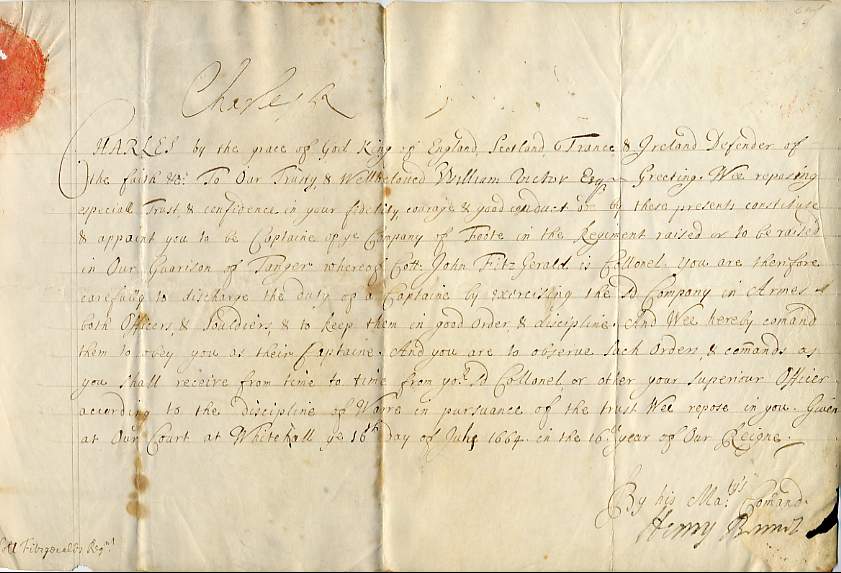 Charles R
CHARLES by the grace of God King of England, Scotland, France & Ireland Defender of
the faith &c. To Our Trusty & Wellbeloved William Victor Esqr. Greeting. Wee reposing
especiall Trust, & confidence in your fidelity, courage & good conduct by these presents constitute
& appoint you to be Captaine of ye Company of Foote in the Regiment raised or to be raised
in Our Guarrison of Tanger whereof John FitzGerald is Collonel. You are therefore
carefully to discharge the duty of a Captaine by exercising the sd Company in Armes
both Officers, & Souldiers, & to keep them in good order, & discipline. And Wee hereby comand
them to obey you as their Captaine. And you are to observe such Orders, & comands as
you shall receive from time to time from yor. sd Collonel or other your superiour Officer
according to the discipline of Warre in pursuance of the trust Wee repose in you. Given
at Our Court at Whitehall ye 16th Day of July 1664. in the 16th year of Our Reigne
By his Matys Comand.
Henry Bennet
Coll Fitzgeralds Regmt